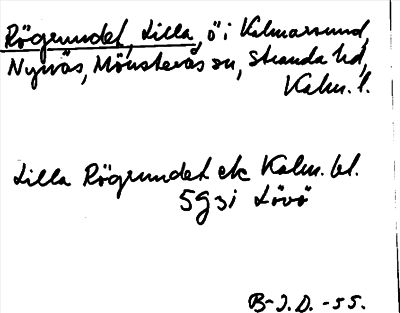 Rögrundet, Lilla, ö i Kalmarsund,
Nynäs, Mönsterås sn, Stranda hd,
Kalm. l.
Lilla Rögrundet ek Kalm. bl.
5g3i Lövö
B-J.D. -55.